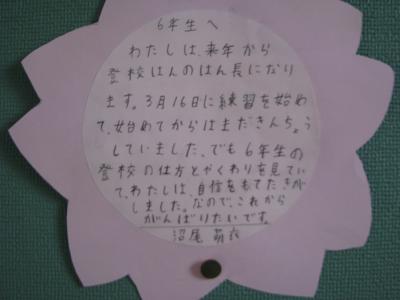 6年生へ
わたしは、来年から
登校はんのはん長になり
ます。3月16日に練習を始め
て、始めてからはまだきんちょう
していました、でも6年生の
登校の仕方とやくわりを見てい
て、わたしは、自信をもてた気が
しました。なので、これから
がんばりたいです。
沼尾 萌衣